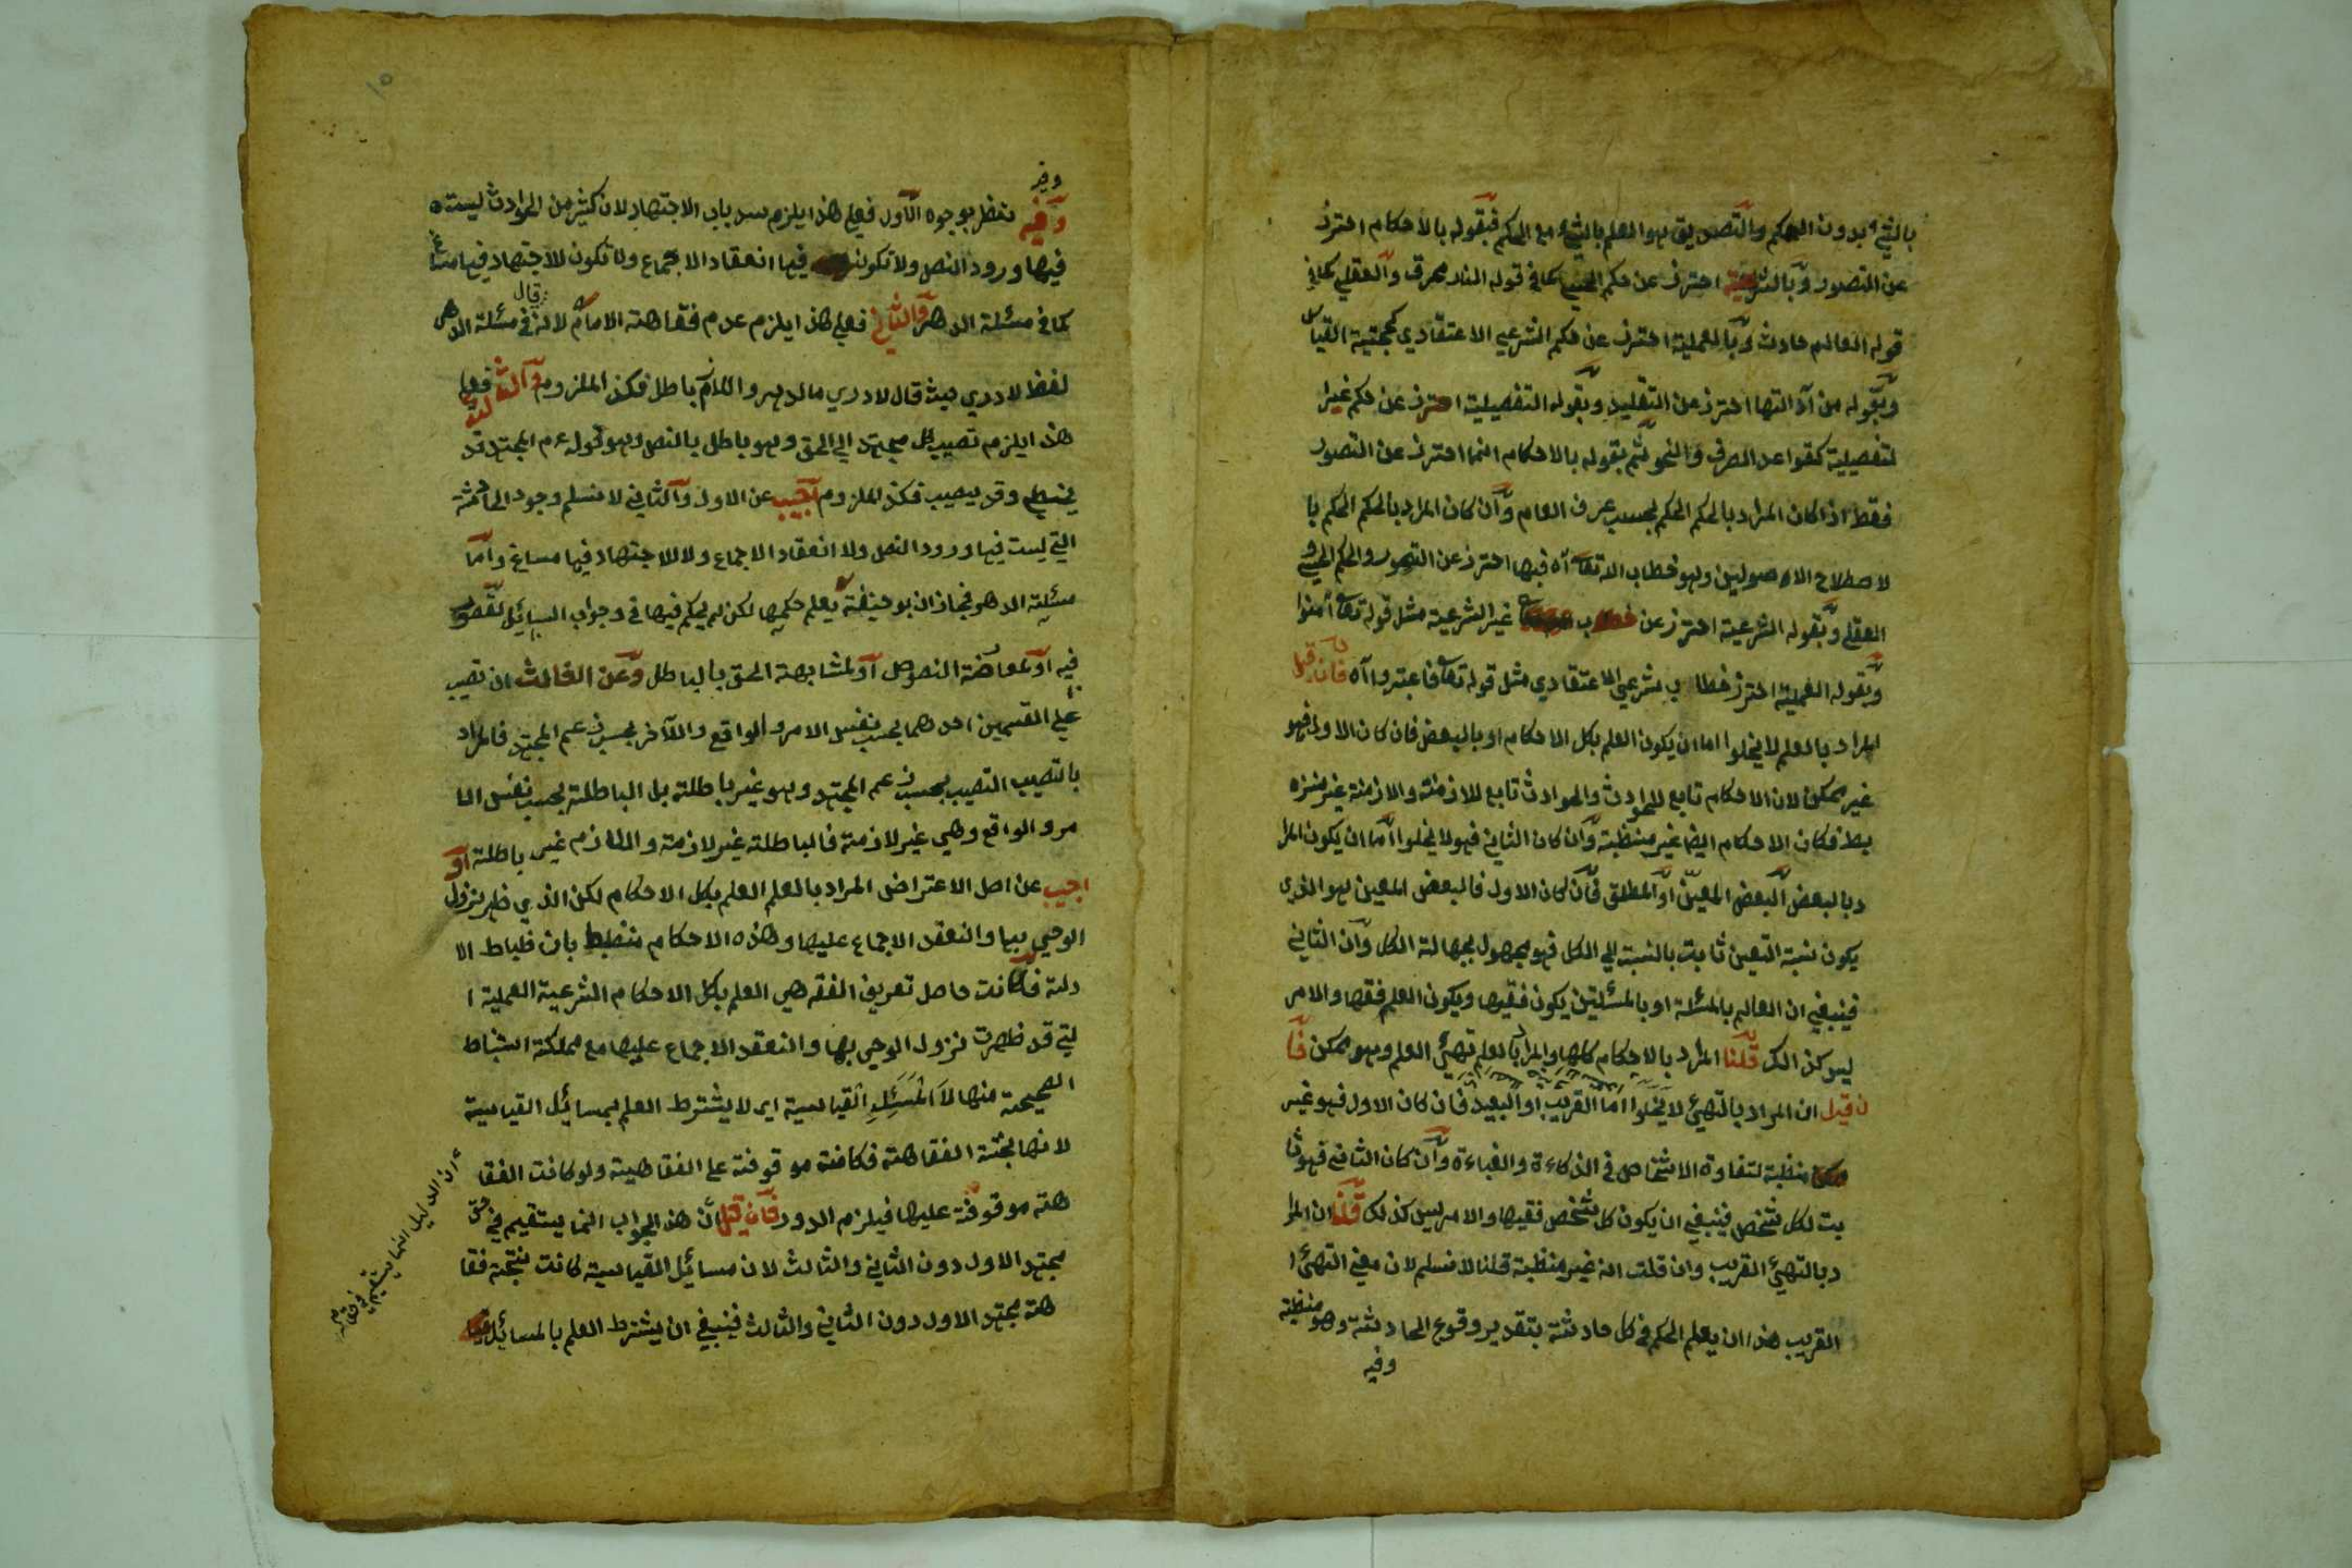 بالشيء بدون الحكم والتصديق هو العلم بالشيء مع الحكم فبقوله بالاحكام احترز
عن التصور وبالشرعية احترز عن حكم الحسي كما في قوله النار محرق والعقلي كما في
قوله العالم حادث وبالعملية احترز عن حكم الشرعي الاعتقادي كحجتية القياس
وبقوله من آدالتها احترز عن التقليد وبقوله التفصيلية احترز عن حكم غير ا
لتفصيلية كقواعد الصرف والنحو ثم بقوله بالاحكام انما احترز عن التصور
فقط اذا كان المراد بالحكم الحكم بحسب عرف العام وان كان المراد بالحكم الحكم با
لاصطلاح الاصوليين وهو خطاب الله تعا آه فبها احترز عن التصور والحكم الحسي و
العقلي وبقوله الشرعية احترز عن خطاب غير الشرعية مثل قوله تعا آمنوا
وبقوله العملية احترز خطاب شرعي الاعتقادي مثل قوله تعا فاعتبروا آه فان قيل
المراد بالعلم لا يخلوا اما ان يكون العلم بكل الاحكام او بالبعض فان كان الاول فهو
غير ممكن لان الاحكام تابع للحوادث والحوادث تابع للازمنة والازمنة غير منزه
بط فكان الاحكام ايضا غير منظبة وان كان الثاني فهو لا يخلوا اما ان يكون المرا
د بالبعض البعض المعين او المطلق فان كان الاول فالبعض المعين هو الذي
يكون نسبة التعين ثابت بالنسبة الي الكل فهو مجهول بجهالة الكل وان الثاني
فينبغي ان العالم بالمسئلة او بالمسئلتين يكون فقيها ويكون العلم فقها والامر
ليس كذالك قلنا المراد بالاحكام كلها والمراد بالعلم تهيئ العلم وهو ممكن فا
ن قيل ان المراد بالتهيئ لا يخلوا اما القريب او البعيد فان كان الاول فهو غير
منظبة لتفاوة الاشخاص في الذكاءة والغباءة وان كان الثاني فهو ثا
بت لكل شخص فينبغي ان يكون كل شخص فقيها والامر ليس كذلك قلنا ان المرا
د بالتهيئ القريب وان قلت انه غير منظبة قلنا لا نسلم لان معني التهيئ ا
القريب هذا ان يعلم الحكم في كل حادثة بتقدير وقوع الحادثة وهو منظبة
وفيه
وفيه
وفيه نظر بوجوه الاول فعلي هذا يلزم سد باب الاجتهاد لان كثير من الحوادث ليست
فيها ورود النص ولا تكون فيها انعقاد الاجماع ولا تكون للاجتهاد فيها مساغ
كما في مسئلة الدهر والثاني فعلي هذا يلزم عدم فقاهة الامام لانه قال في مسئلة الدهر
لفظ لا دري حيث قال لا دري ما الدهر واللازم باطل فكذ الملزوم والثالث فعلي
هذا يلزم تصيب كل مجتهد الي الحق وهو باطل بالنص وهو قوله ع م المجتهد قد
يخطئ وقد يصيب فكذ الملزوم اجيب عن الاول والثاني لا نسلم وجود الحادثة
التي ليست فيها ورود النص ولا انعقاد الاجماع ولا للاجتهاد فيها مساغ واما
مسئلة الدهر فجاز ان بو حنيفة يعلم حكمها لكن لم يحكم فيها في وجواب السائل لقصور
فيه او لمعارضة النصوص او لمشابهة الحق بالباطل وعن الثالث ان تصيب
علي القسمين احدهما بحسب نفس الامر والواقع والآخر بحسب زعم المجتهد فالمراد
بالتصيب التصيب بحسب زعم المجتهد وهو غير باطلة بل الباطلة بحسب نفس الا
مر والواقع وهي غير لازمة فالباطلة غير لازمة واللازم غير باطلة او
اجيب عن اصل الاعتراض المراد بالعلم العلم بكل الاحكام لكن الذي ظهر نزول
الوحي بها وانعقد الاجماع عليها وهذه الاحكام منظبط بان ظباط الا
دلة فكانت حاصل تعريف الفقه هي العلم بكل الاحكام الشرعية العملية ا
لتي قد ظهرت نزول الوحي بها وانعقد الاجماع عليها مع مملكة استنباط
الصحيحة منها لا المسئل القياسية اي لا يشترط العلم بمسائل القياسية
لانها نتيجة الفقاهة فكانت موقوفة علي الفقاهية ولو كانت الفقا
هة موقوفة عليها فيلزم الدور فان قيل ان هذا الجواب انما يستقيم في حق
مجتهد الاول دون الثاني والثالث لان مسائل القياسية كانت نتيجة فقا
هة مجتهد الاول دون الثاني والثالث فينبغي ان يشترط العلم بالمسائل